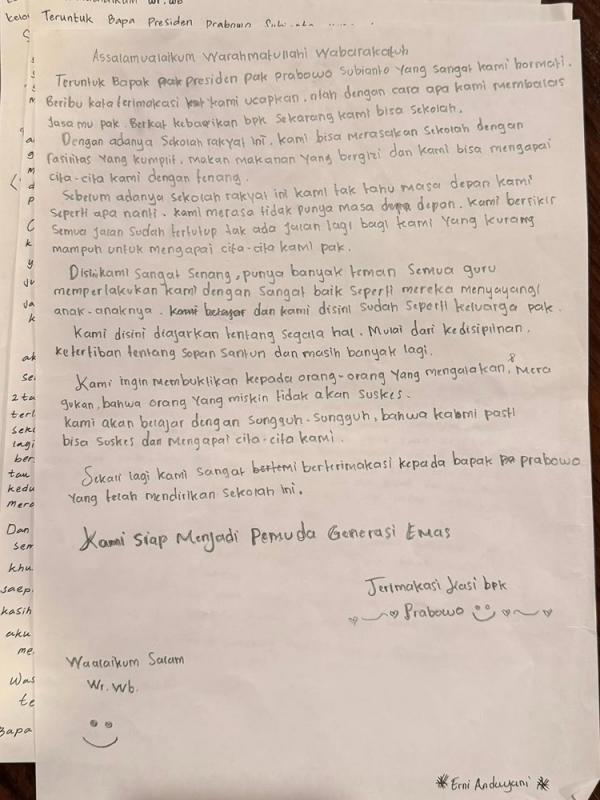 Teruntuk Bapa Presiden Prabowo
Assalamualaikum Warahmatullahi Wabarakatuh
Teruntuk Bapak pak presiden pak prabowo Subianto yang sangat kami hormati.
Beribu kata terimakasi kami ucapkan. ntah dengan cara apa kami membalas
Jasa mu pak. Berkat kebaikan bpk sekarang kami bisa sekolah.
Dengan adanya Sekolah rakyat ini. kami bisa merasakan sekolah dengan
fasilitas yang kumplit. makan makanan yang bergizi dan kami bisa mengapai
cita-cita kami dengan tenang.
Sebelum adanya sekolah rakyat ini kami tak tahu masa depan kami
seperti apa nanti. kami merasa tidak punya masa depan. kami berfikir
semua jalan sudah tertutup tak ada jalan lagi bagi kami yang kurang
mampuh untuk mengapai cita-cita kami pak.
Disini kami sangat senang, punya banyak teman semua guru
memperlakukan kami dengan sangat baik seperti mereka menyayangi
anak-anaknya. kami belajar dan kami disini sudah seperti keluarga pak.
Kami disini diajarkan tentang segala hal. Mulai dari kedisiplnan.
ketertiban tentang sopan santun dan masih banyak lagi.
Kami ingin membuktikan kepada orang-orang yang mengatakan, & mera
gukan, bahwa orang yang miskin tidak akan suskes.
Kami akan belajar dengan songguh-songguh, bahwa kabmi pasti
bisa suskes dan mengapai cita-cita kami.
Sekali lagi kami sangat bertemi berterimakasi kepada bapak pa prabowo
yang telah mendirikan sekolah ini.
Kami siap Menjadi Pemuda Generasi Emas
Terimakasi kasi bpk
Prabowo
Waalaikum Salam
Wr. Wb.
Erni Andayani